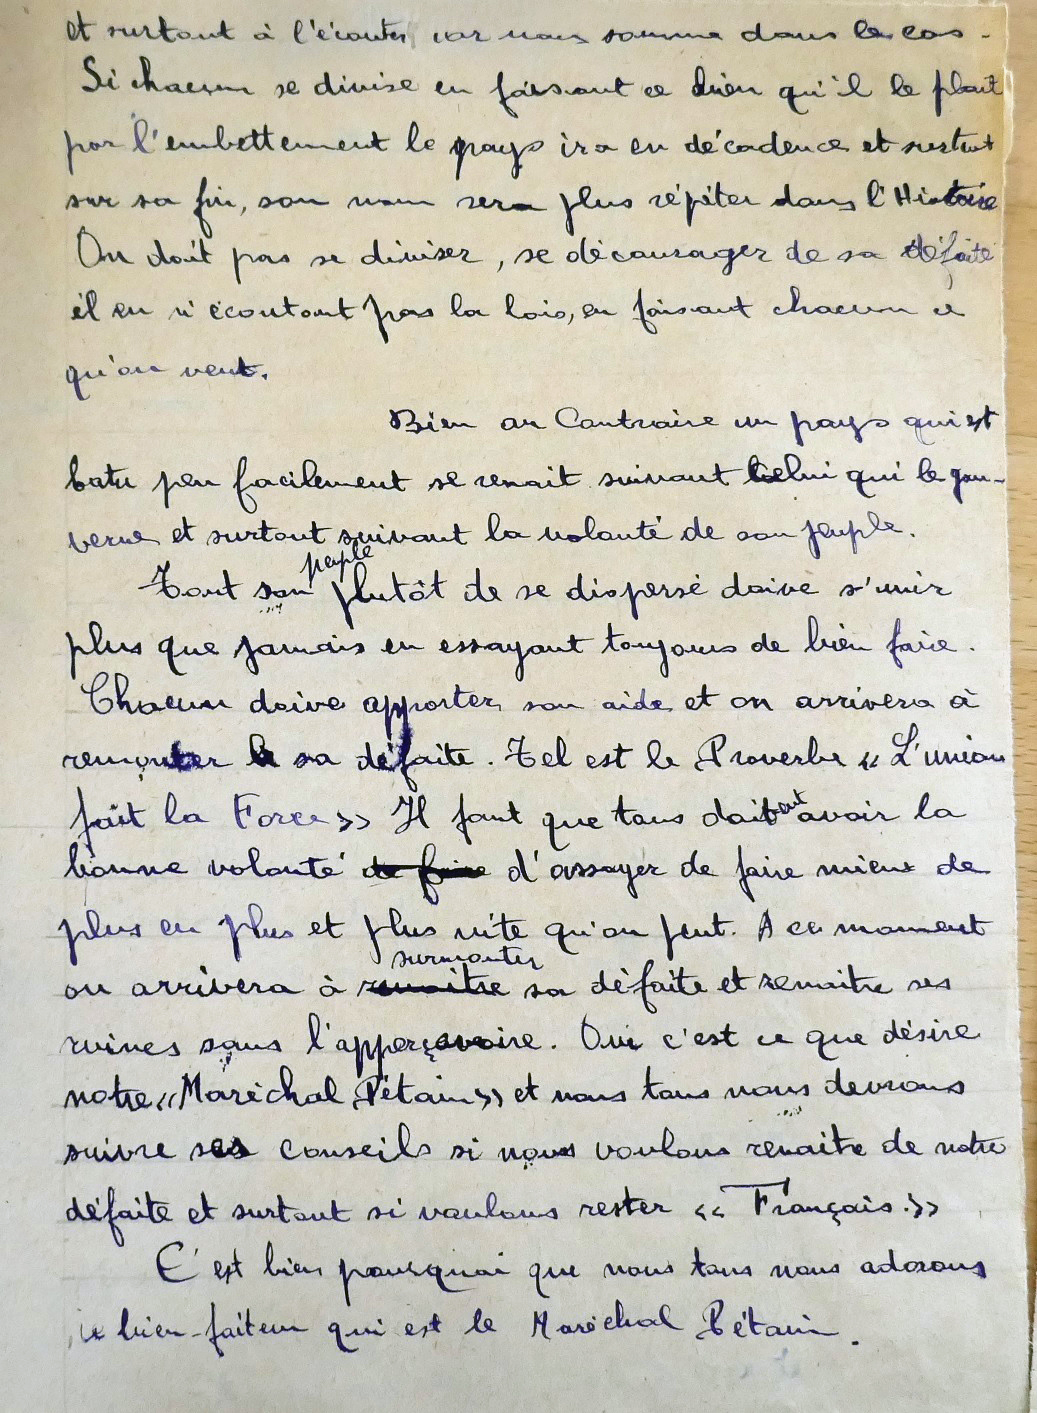 et surtout à l'écouter, car nous somme dans le cas.
Si chacun se divise en faisant ce bien qu'il le plait
par l'embettement le pays ira en décadence et surtout
sur sa fin, son nom sera plus répéter dans l'Histoire
On doit pas se diviser, se décourager de sa défaite
él en n'écoutant pas la lois, en faisant chacun ce
qu'on veut.
Bien au Contraire un pays qui est
batu peu facilement se renait suivant celui qui le gou-
verne et surtout suivant la volonté de son peuple.
Tout son peuple plutôt de se dispersé doive s'unir
plus que jamais en essayant toujours de bien faire.
Chacun doive apporter son aide et on arrivera à
remonter sa défaite. Tel est le Proverbe « L'union
fait la Force » Il faut que tous doivent avoir la
bonne volonté de faire d'assayer de faire mieux de
plus en plus et plus vite qu'on peut. A ce moment
surmonter
on arrivera à renaitre sa défaite et renaitre ses
ruines sans l'apperçevoire. Oui c'est ce que désire
notre « Maréchal Pétain » et nous tous nous devrons
suivre ses conseils si nous voulons renaitre de notre
défaite et surtout si voulons rester « Français. »
C'est bien pourquoi que nous tous nous adorons
ce bien-faiteur qui est le Maréchal Pétain.